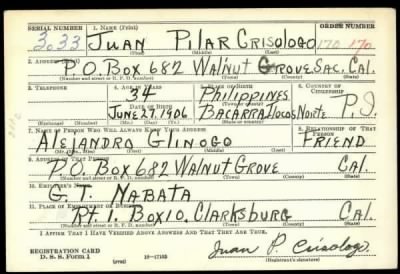 SERIAL NUMBER 1. NAME (Print) ORDER NUMBER
3033 JUAN PILAR CRISOLOGO 170 170
(First) (Middle) (Last)
2. ADDRESS (Print)
P.O. BOX 682 WALNUT GROVE SAC. CAL.
(Number and street or R. F. D. number) (Town) (County) (State)
3. TELEPHONE 4. AGE IN YEARS 5. PLACE OF BIRTH 6. COUNTRY OF CITIZENSHIP
34 PHILIPPINES
DATE OF BIRTH
JUNE 27, 1906 BACARRA ILOCOS NORTE P.I.
(Exchange) (Number) (Mo.) (Day) (Yr.) (State or country)
7. NAME OF PERSON WHO WILL ALWAYS KNOW YOUR ADDRESS 8. RELATIONSHIP OF THAT PERSON
ALEJANDRO GLINOGO FRIEND
(Mr., Mrs., Miss) (First) (Middle) (Last)
9. ADDRESS OF THAT PERSON
P.O. BOX 682 WALNUT GROVE CAL.
(Number and street or R. F. D. number) (Town) (County) (State)
10. EMPLOYER'S NAME
G. T. NABATA
11. PLACE OF EMPLOYMENT OR BUSINESS
RT. 1. BOX 10. CLARKSBURG CAL.
(Number and street or R. F. D. number) (Town) (County) (State)
I AFFIRM THAT I HAVE VERIFIED ABOVE ANSWERS AND THAT THEY ARE TRUE.
REGISTRATION CARD
D. S. S. Form 1 (over) 16—17105 Juan P. Crisologo
(Registrant's signature)